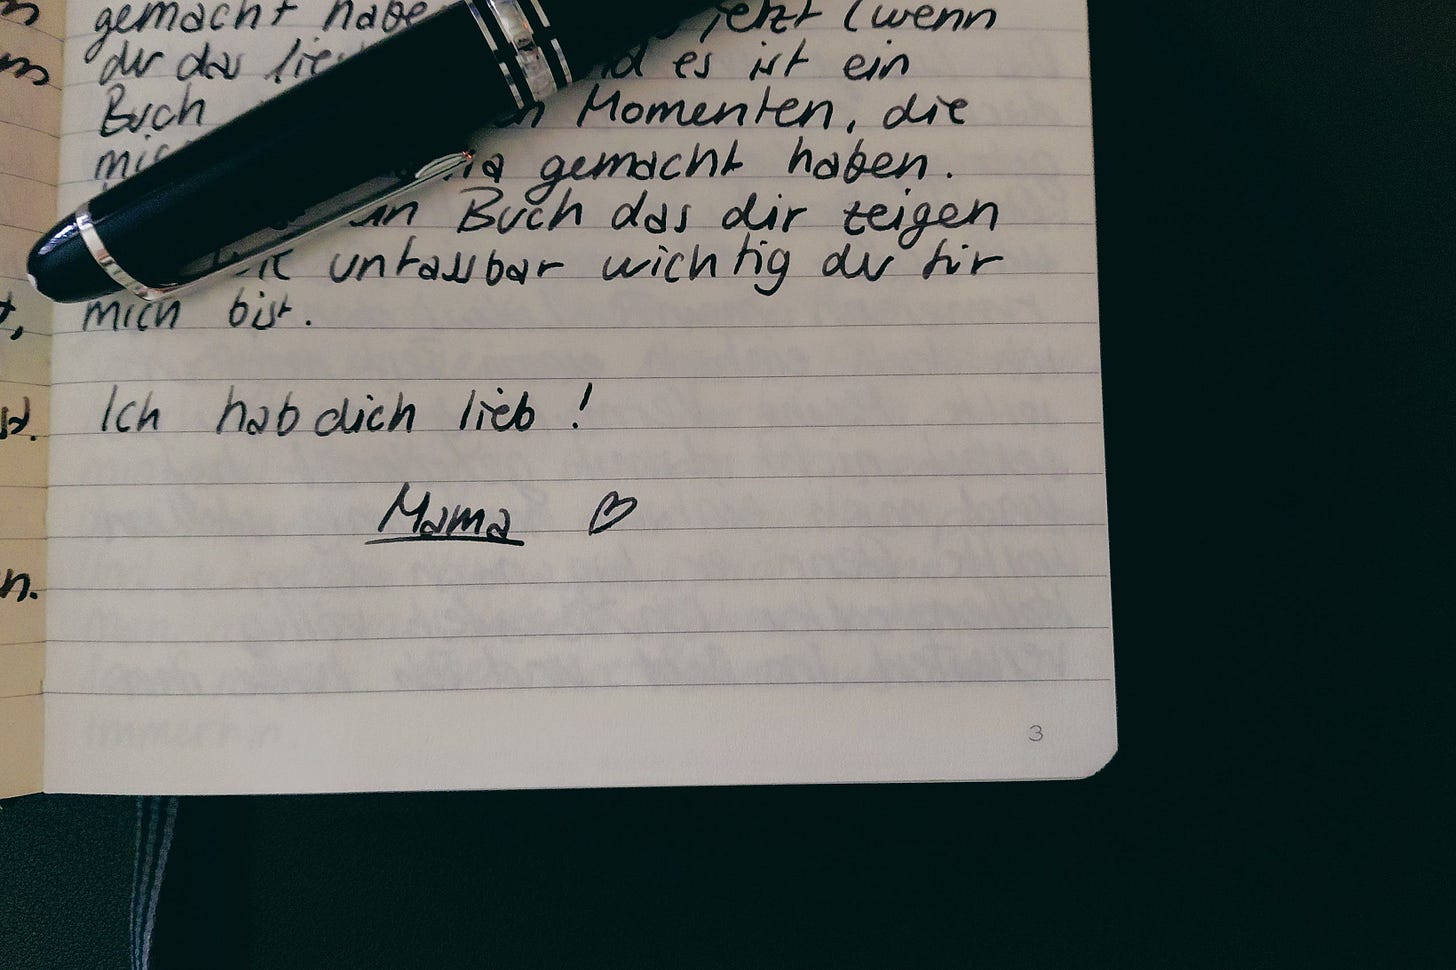 gemacht habe jetzt (wenn
du das es ist ein
Buch Momenten, die
gemacht haben.
Buch das dir zeigen
unfassbar wichtig du für
mich bist.
Ich hab dich lieb!
Mama ♡
3